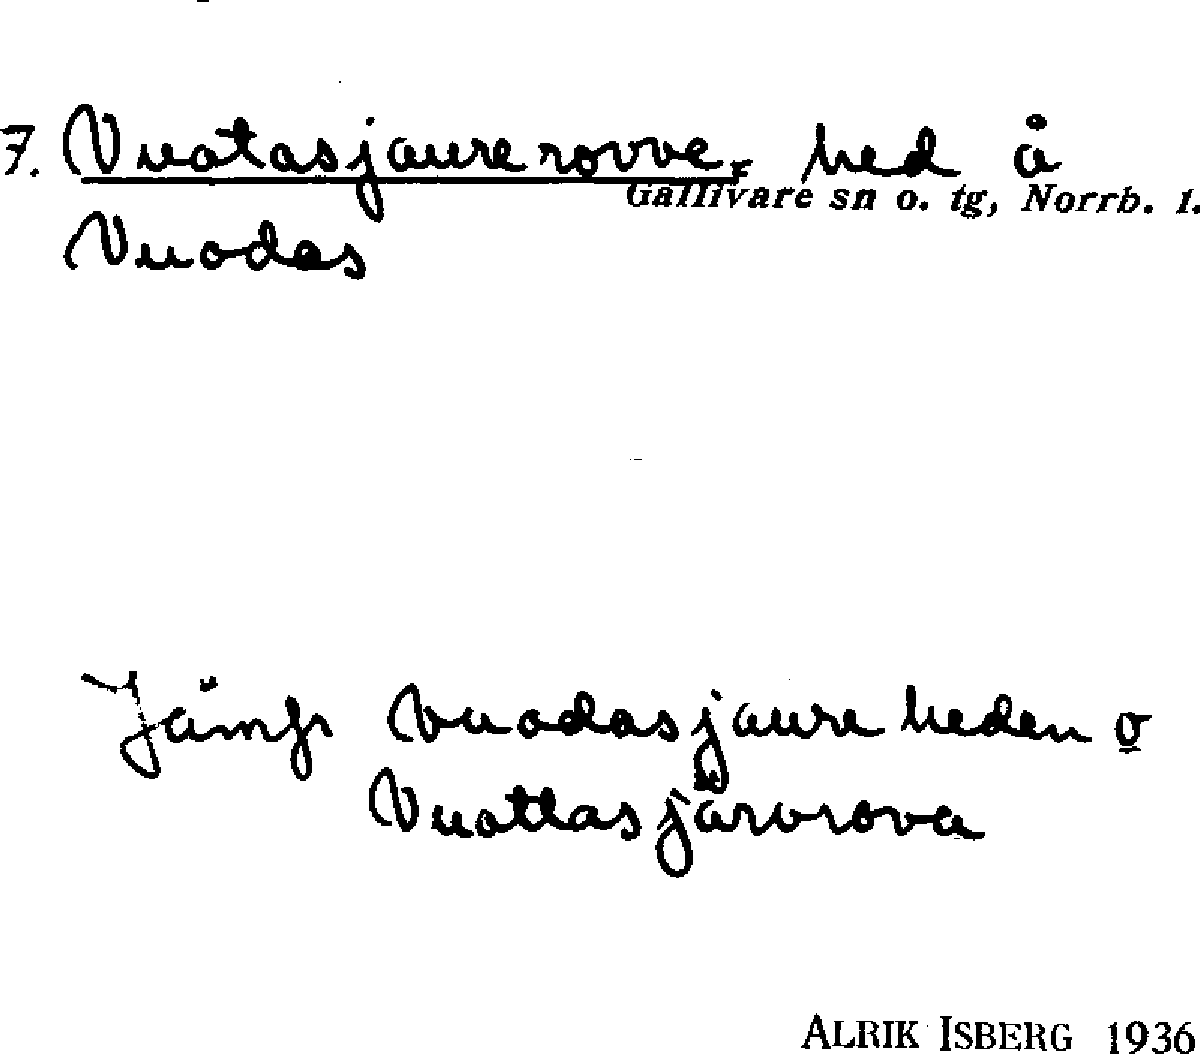 7. Vuotasjaurerovve, hed å
Gällivare sn o. tg, Norrb. l.
Vuodas
Jämfr Vuodasjaureheden o
Vuottasjärvrova
ALRIK ISBERG 1936